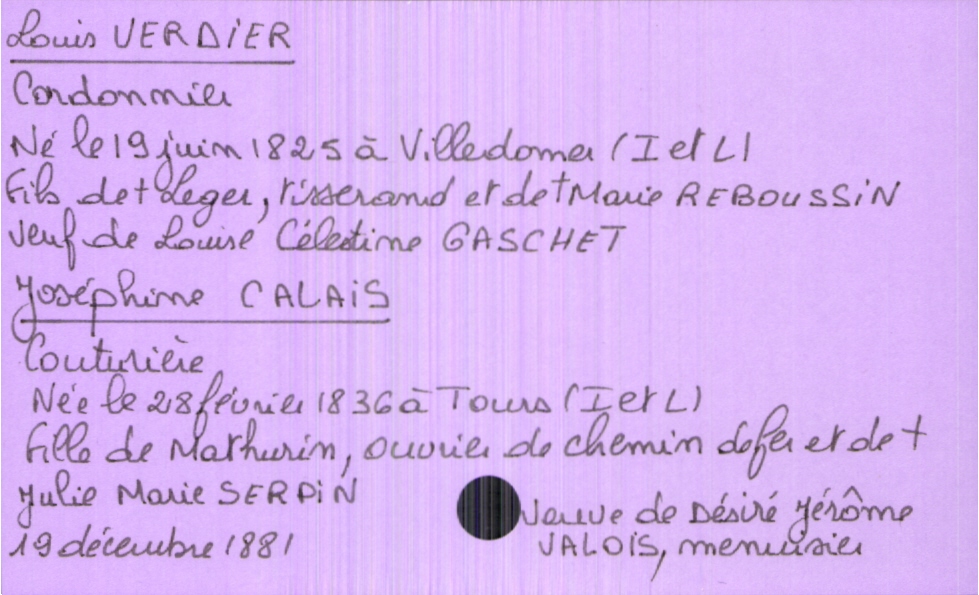 Louis VERDIER
Cordonnier
Né le 19 juin 1825 à Villedomer (I et L)
Fils de + Leger, tisserand et de + Marie REBOUSSIN
Veuf de Louise Célestine GASCHET
Joséphine CALAIS
Couturière
Née le 28 février 1836 à Tours (I et L)
Fille de Mathurin, ouvrier de chemin de fer et de +
Julie Marie SERPIN
Veuve de Désiré Jérôme
19 décembre 1881
VALOIS, menuisier